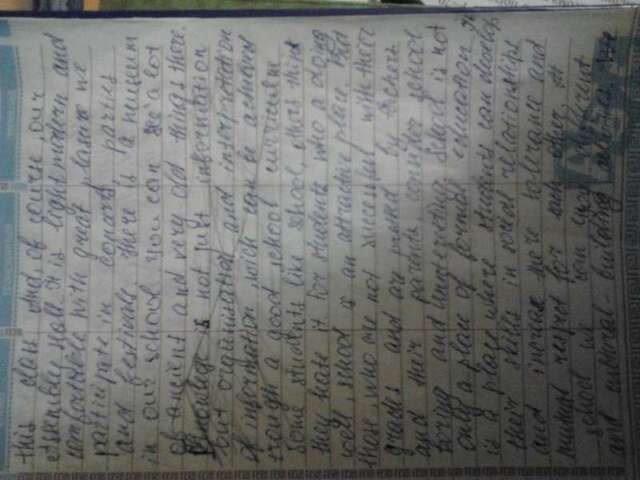 this class And, of course, our
assembly Hall. It is light, modern and
comfortable. With great plasure we
participate in concerts, parties
and festivals. There is a museum
in our school. you can se a lot
of ancient and very old things there.
Knowledge is not just information
but organisation and interpretation
of information, which can be achieved
trough a good school curriculum
Some students like school, others think
they hate it. For students who a doing
well, school is an attractive place, But
those, who are not successful with there
grades and are punised by techers
and their parents consider school
boring and uninteresting. School is not
only a place of formal education. It
is a place where students can develop
their skills in social relationships
and increase there tolerance and
mutual respect for each other. At
school we can visit different
and cultural-building activities